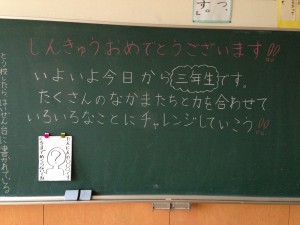 しんきゅうおめでとうございます!!
いよいよ今日から三年生です。
たくさんのなかまたちと力を合わせて
いろいろなことにチャレンジしていこう!!